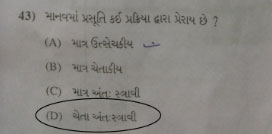 43) માનવમાં પ્રસૂતિ કઈ પ્રક્રિયા દ્વારા પ્રેરાય છે ?
(A) માત્ર ઉત્સેચકીય
(B) માત્ર ચેતાકીય
(C) માત્ર અંતઃ સ્ત્રાવી
(D) ચેતા અંતઃસ્ત્રાવી